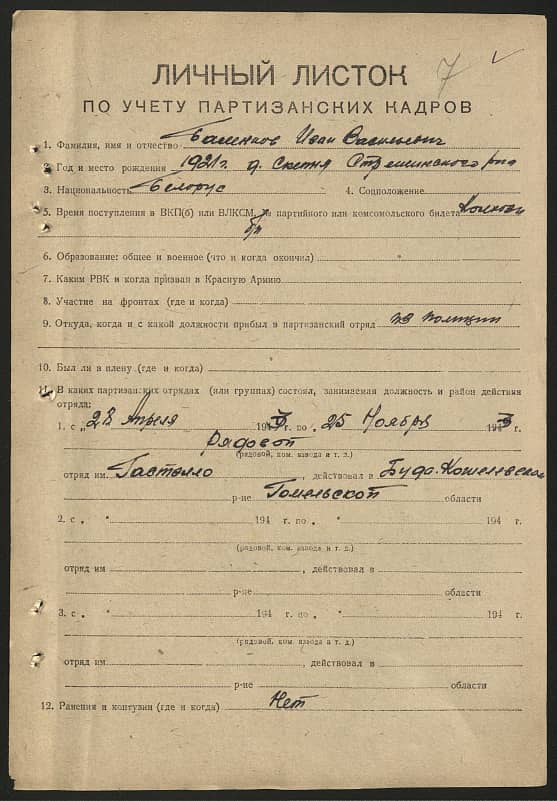 7
ЛИЧНЫЙ ЛИСТОК
ПО УЧЕТУ ПАРТИЗАНСКИХ КАДРОВ
1. Фамилия, имя и отчество Баленков Иван Васильевич
2. Год и место рождения 1921 г. д. Скепня Стрешинского р-на
3. Национальность Белорус 4. Соцположение
5. Время поступления в ВКП(б) или ВЛКСМ, № партийного или комсомольского билета
б/п
6. Образование: общее и военное (что и когда окончил)
7. Каким РВК и когда призван в Красную Армию
8. Участие на фронтах (где и когда)
9. Откуда, когда и с какой должности прибыл в партизанский отряд из полиции
10. Был ли в плену (где и когда)
11. В каких партизанских отрядах (или группах) состоял, занимаемая должность и район действия
отряда:
1. с „28 Апреля 1943 г. по „25 Ноября 1943 г.
Рядовой
(рядовой, ком. взвода и т. д.)
отряд им. Гастелло, действовал в Буда-Кошелевском
р-не Гомельской области
2. с „ " 194 г. по „ " 194 г.
(рядовой, ком. взвода и т. д.)
отряд им , действовал в
р-не области
3. с „ " 194 г. по „ " 194 г.
(рядовой, ком. взвода и т. д.)
отряд им , действовал в
р-не области
12. Ранения и контузии (где и когда) Нет